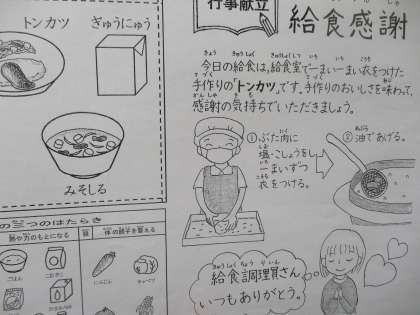 トンカツ
ぎゅうにゅう
みそしる
行事献立
給食感謝
今日の給食は,給食室で一まい一まい衣をつけた
手作りの「トンカツ」です。手作りのおいしさを味わって,
感謝の気持ちでいただきましょう。
①ぶた肉に
塩・こしょうをし
一まいずつ
衣をつける。
②油であげる。
給食調理員さん
いつもありがとう。
の三つのはたらき
熱や力のもとになる
体の調子を整える
ごはん
にんじん
きゅうり